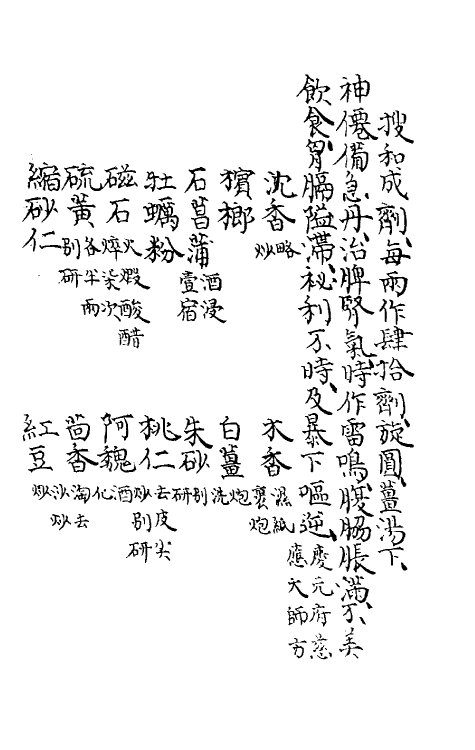 搜和成劑、每兩作肆拾劑、旋圓、薑湯下、
神僊備急丹、治脾腎氣、時作雷鳴、腹脇脹滿、不美
飲食、胃膈隘滯、祕利不時、及暴下嘔逆、慶元府慈應大師方
沈香略炒 木香濕紙裹炮
檳榔 白薑炮洗
石菖蒲酒浸壹宿 朱砂别研
牡蠣粉 桃仁去皮尖炒别研
磁石火煆酸醋焠柒次 阿魏酒化
硫黃各半兩别研 茴香淘去沙炒
縮砂仁 紅豆炒